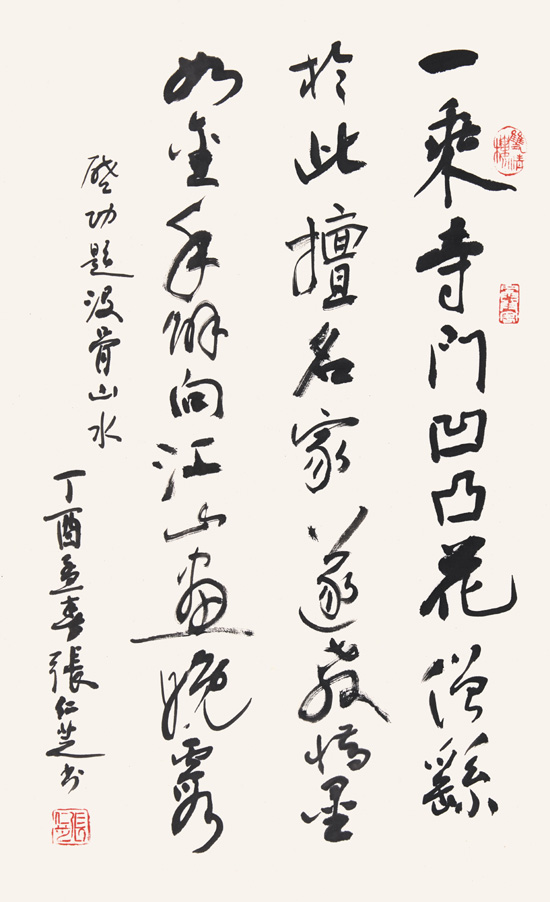 一乘寺門凹凸花僧繇
於此擅名家遂教惜墨
如金手解向江山畫晚霞
啟功題没骨山水
丁酉孟春張仁芝书